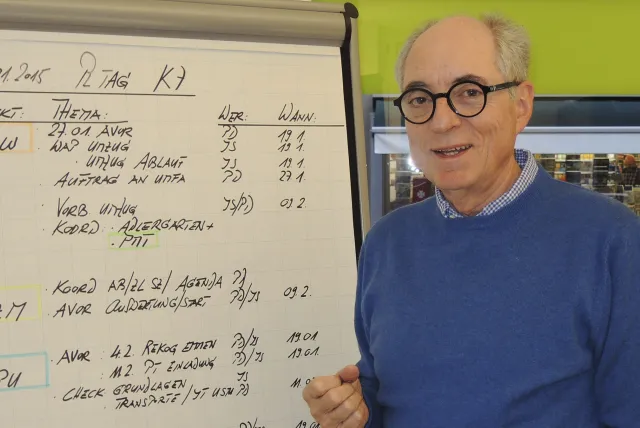 1.2015 RTAG K7
KT: THEMA: WER: WANN:
W 27.01 AVOR PD 19.1.
WAP UMZUG JS 19.1.
UMZUG ABLAUF JS 19.1.
AUFTRAG AN UMFA PD 27.1
VORB UMZUG JS/PD 09.2.
KOORD: ADLERGARTEN +
· PMT
KOORD AB/ZL SZ/ AGENDA PD
M AVOR AUSWERTUNG/START PD/JS 09.2.
· AVOR: 4.2. REKOG EMMEN PD/JS 19.01
11.2. PT EINLADUNG PD/JS 19.01.
PU · CHECK GRUNDLAGEN JS
TRANSPORTE / PD 11.
19.01